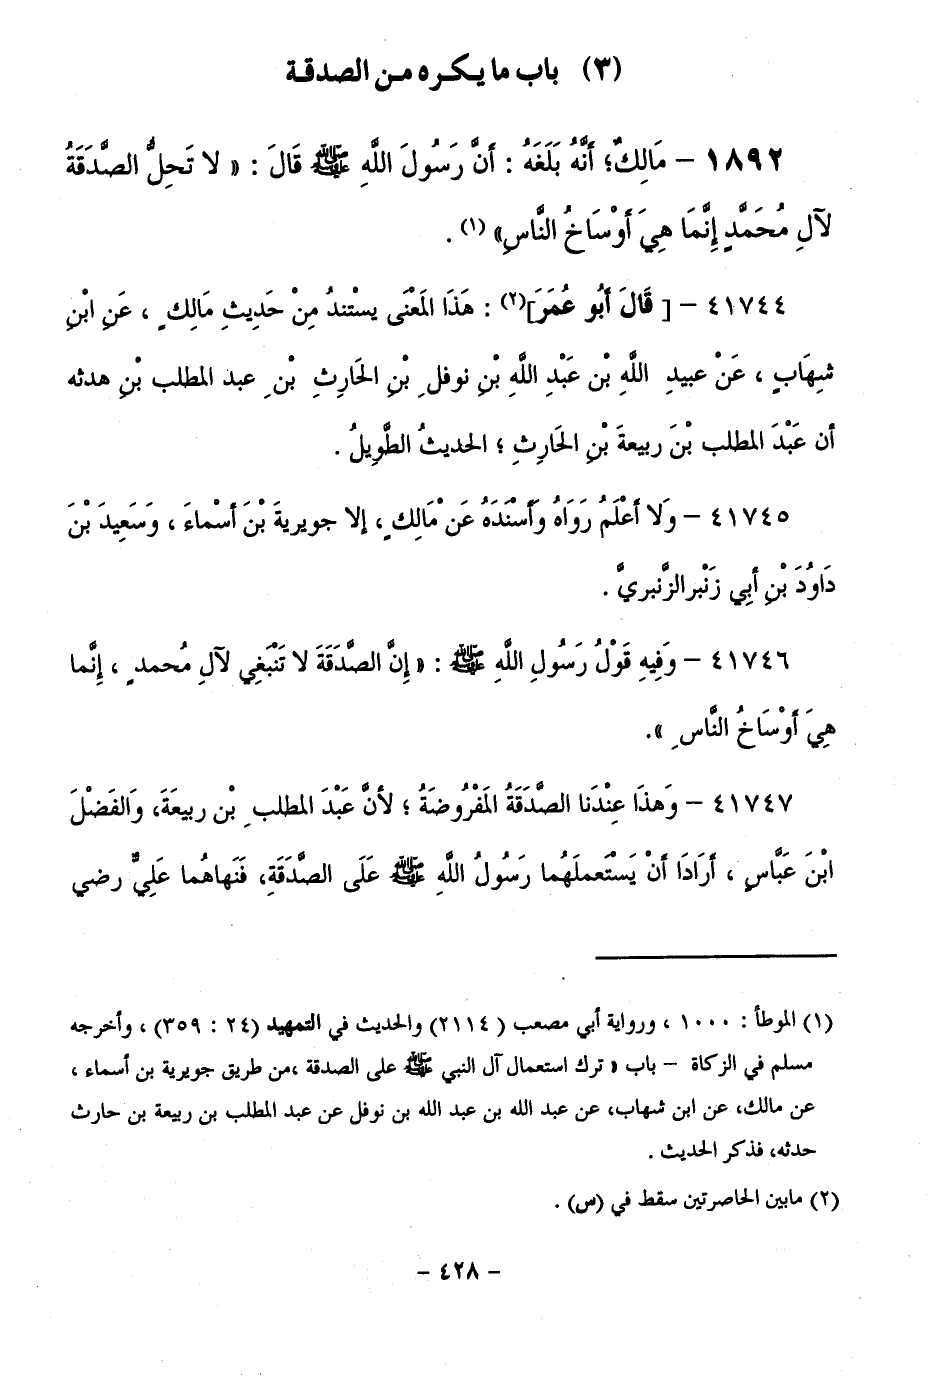 (٣) باب ما يكره من الصدقة
١٨٩٢ – مَالِكٌ؛ أَنَّهُ بَلَغَهُ : أَنَّ رَسُولَ اللَّهِ ﷺ قَالَ : « لا تَحِلُّ الصَّدَقَةُ
لآلِ مُحَمَّدٍ إِنَّمَا هِيَ أَوْسَاخُ النَّاسِ» (١) .
٤١٧٤٤ – [ قَالَ أَبُو عُمَرَ](٢) : هَذَا المَعْنَى يسْتندُ مِنْ حَدِيثِ مَالِكٍ ، عَنِ ابْنِ
شِهَابٍ ، عَنْ عبيدِ اللَّهِ بْنِ عَبْدِ اللَّهِ بْنِ نوفلِ بْنِ الحَارِثِ بْنِ عبد المطلب بْنِ هدثه
أن عَبْدَ المطلب بْنَ ربيعةَ بْنِ الحَارِثِ ؛ الحديثُ الطَّوِيلُ .
٤١٧٤٥ – وَلا أَعْلَمُ رَوَاهُ وَأَسْنَدَهُ عَنْ مَالِكٍ ، إلا جويريةَ بْنَ أَسْماءَ ، وَسَعِيدَ بْنَ
دَاوُدَ بْنِ أَبِي زَنْبرالزَّنبريَّ .
٤١٧٤٦ – وَفِيهِ قَوْلُ رَسُولِ اللَّهِ ﷺ : « إِنَّ الصَّدَقَةَ لا تَنْبَغِي لآلِ مُحمدٍ ، إِنَّما
هِيَ أَوْسَاخُ النَّاسِ ».
٤١٧٤٧ – وَهذَا عِنْدَنا الصَّدَقَةُ المَفْرُوضَةُ ؛ لأنَّ عَبْدَ المطلبِ بْن ربيعَةَ، وَالفَضْلَ
ابْنَ عَبَّاسٍ ، أَرَادَا أَنْ يَسْتَعملَهُما رَسُولُ اللَّهِ ﷺ عَلَى الصَّدَقَةِ، فَنَهاهُما عَلِيٌّ رضي
(١) الموطأ : ١٠٠٠ ، ورواية أبي مصعب (٢١١٤) والحديث في التمهيد (٢٤ : ٣٥٩) ، وأخرجه
مسلم في الزكاة – باب « ترك استعمال آل النبي ﷺ على الصدقة ،من طريق جويرية بن أسماء ،
عن مالك، عن ابن شهاب، عن عبد الله بن عبد الله بن نوفل عن عبد المطلب بن ربيعة بن حارث
حدثه، فذكر الحديث .
(٢) مابين الحاصرتين سقط في (س) .
– ٤٢٨ –